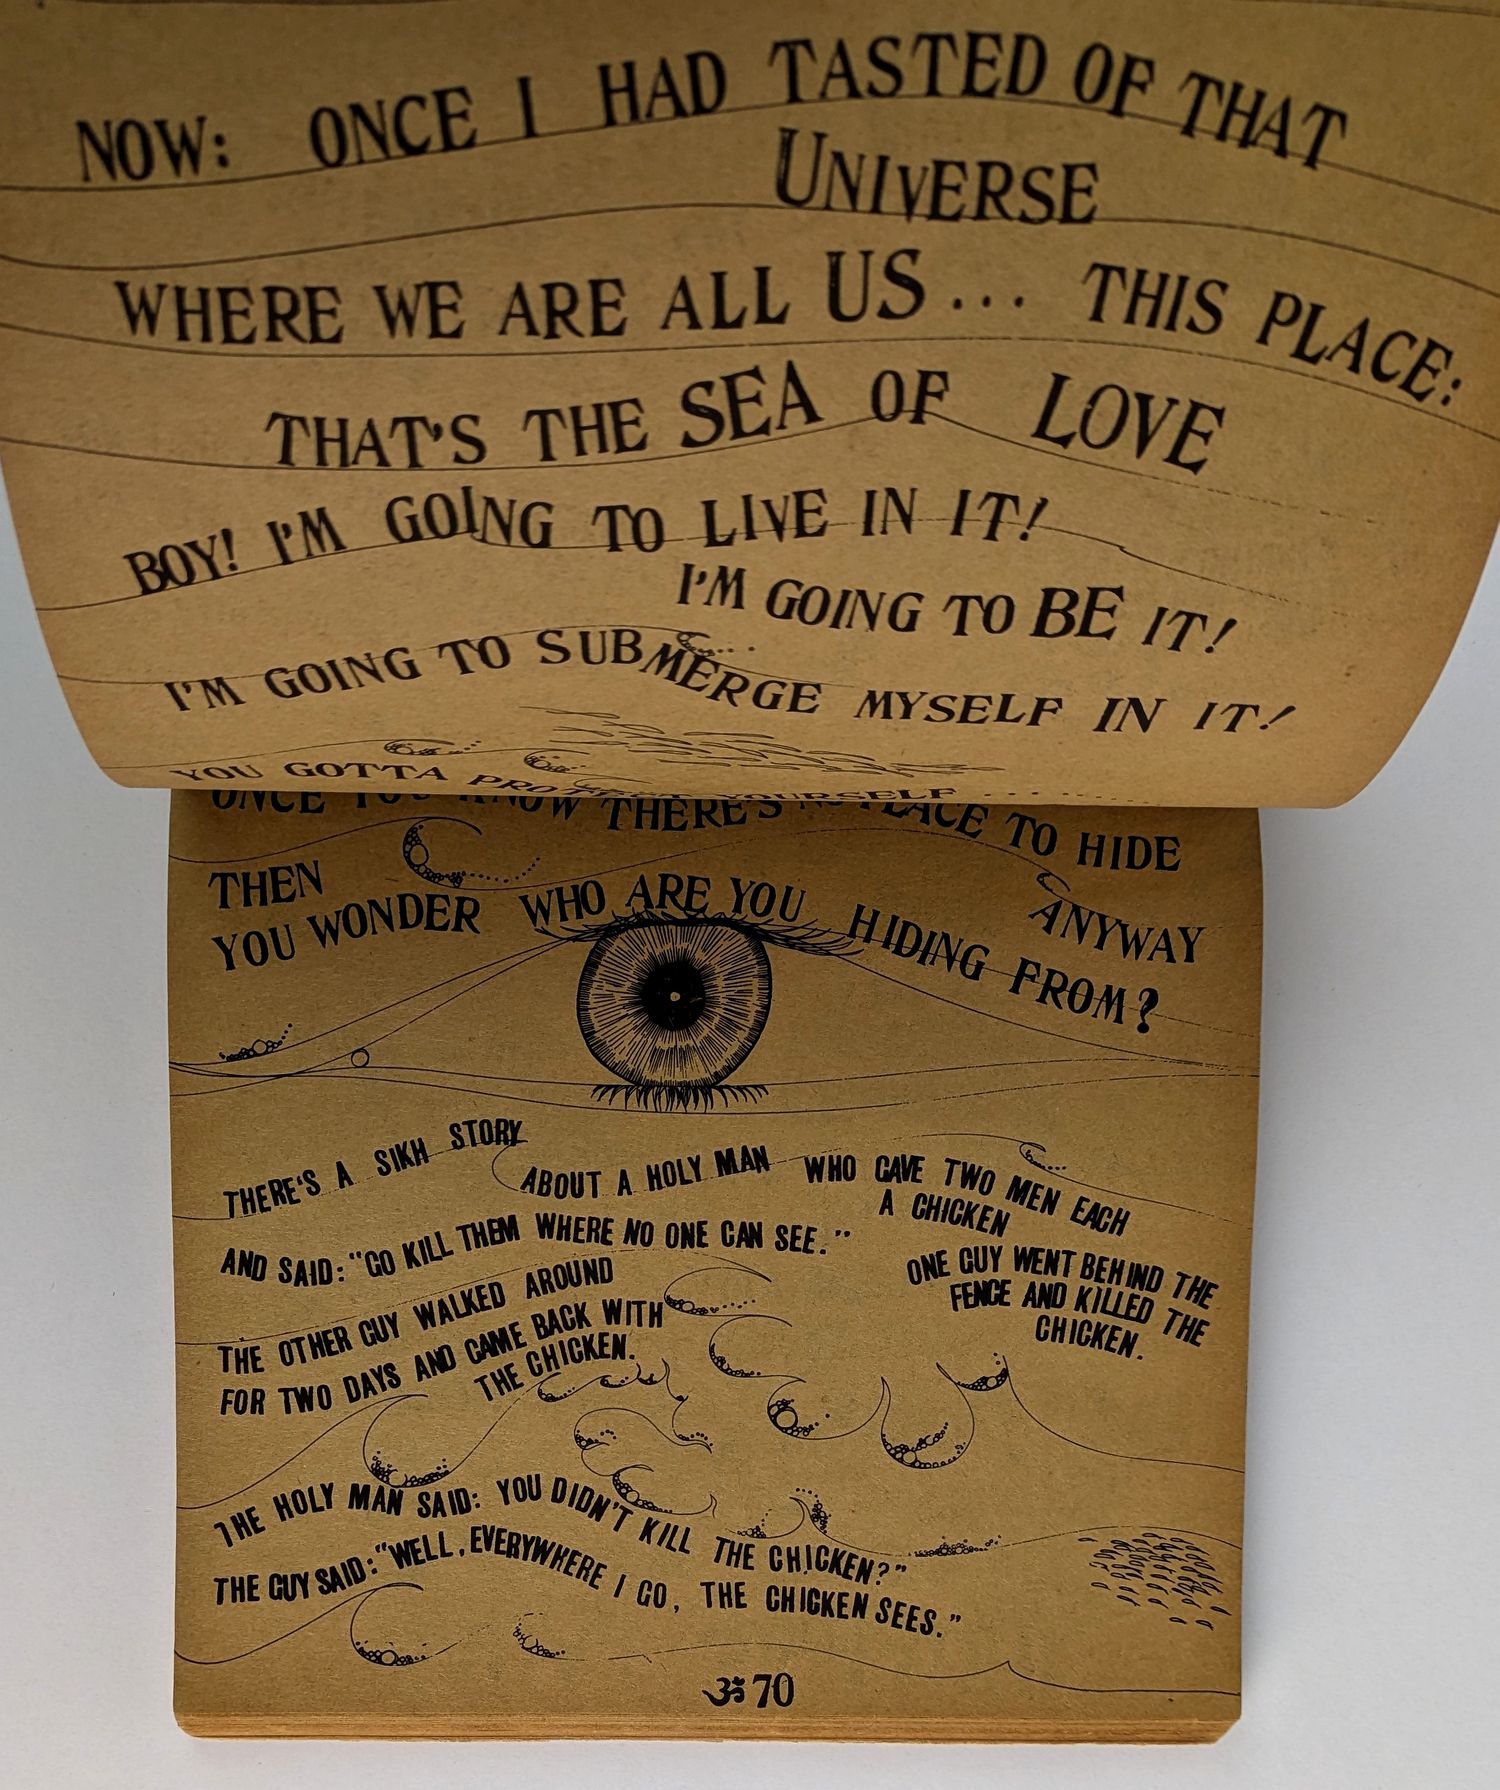 NOW: ONCE I HAD TASTED OF THAT
UNIVERSE
WHERE WE ARE ALL US... THIS PLACE:
THAT'S THE SEA OF LOVE
BOY! I'M GOING TO LIVE IN IT!
I'M GOING TO BE IT!
I'M GOING TO SUBMERGE MYSELF IN IT!
YOU GOTTA PROTECT YOURSELF ...........
ONCE YOU KNOW THERE'S NO PLACE TO HIDE
THEN
ANYWAY
YOU WONDER WHO ARE YOU HIDING FROM?
THERE'S A SIKH STORY
ABOUT A HOLY MAN WHO GAVE TWO MEN EACH
A CHICKEN
AND SAID: "GO KILL THEM WHERE NO ONE CAN SEE."
ONE GUY WENT BEHIND THE
FENCE AND KILLED THE
CHICKEN.
THE OTHER GUY WALKED AROUND
FOR TWO DAYS AND CAME BACK WITH
THE CHICKEN.
THE HOLY MAN SAID: YOU DIDN'T KILL THE CHICKEN?"
THE GUY SAID: "WELL, EVERYWHERE I GO, THE CHICKEN SEES."
ॐ 70